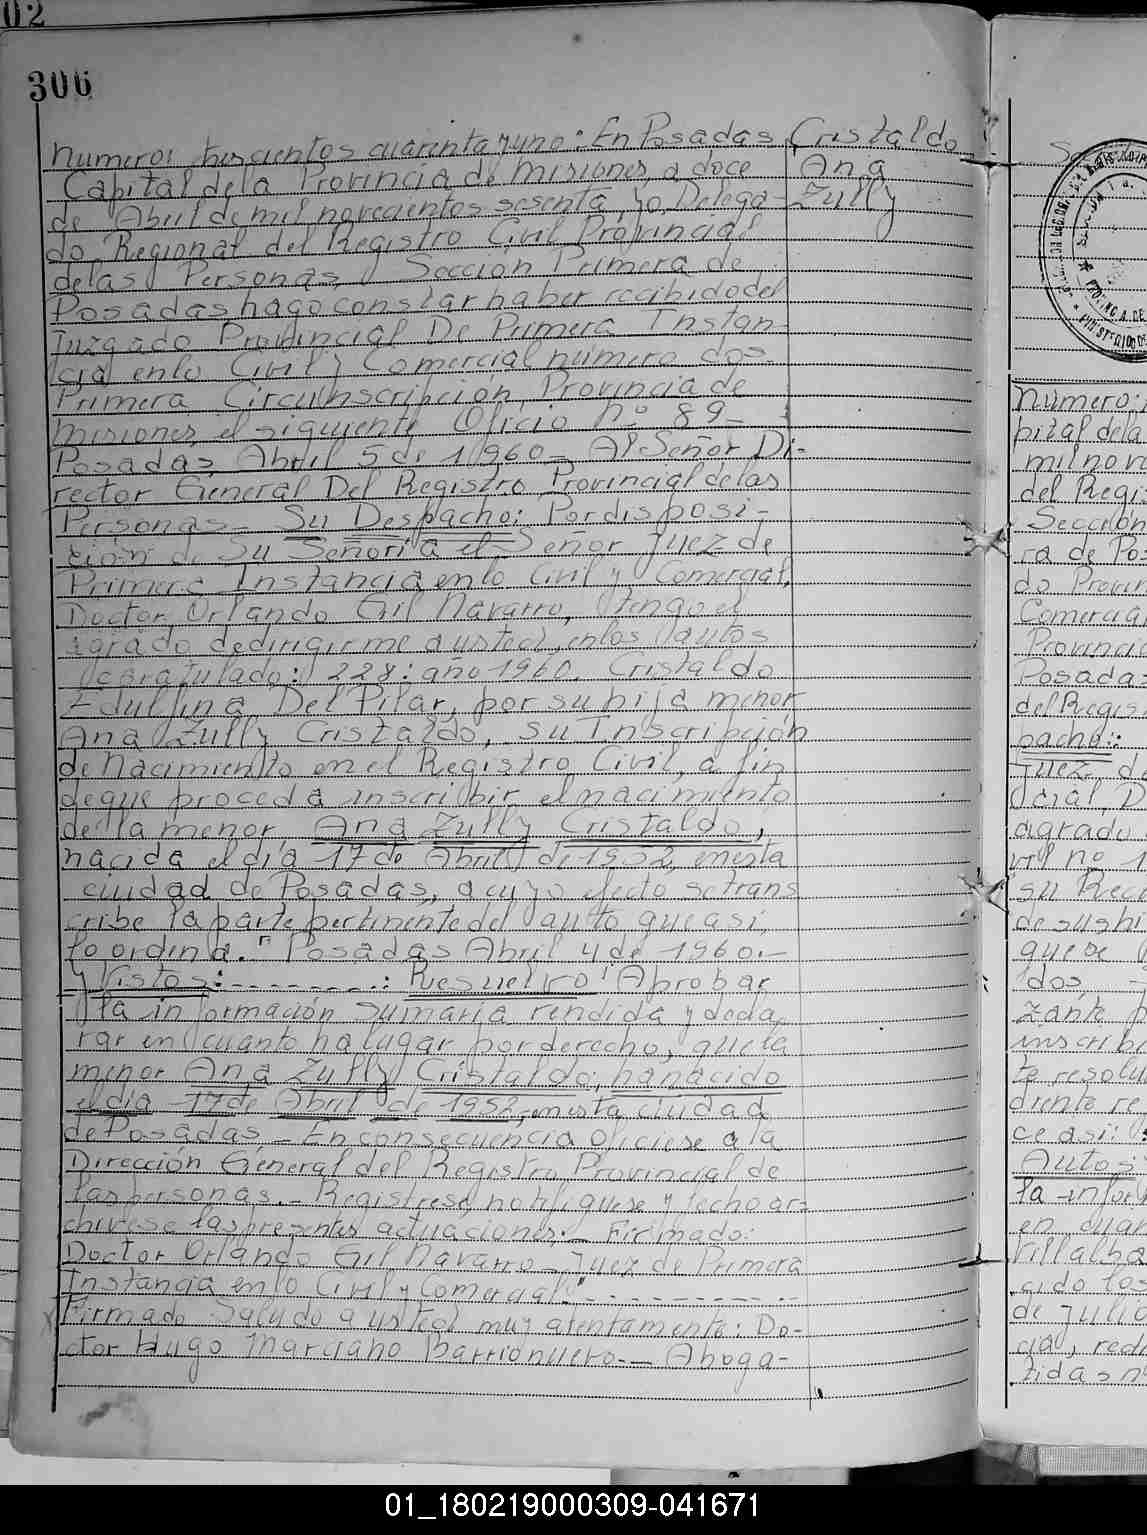 02
306
Numero: trescientos cuarenta y uno: En Posadas
Capital de la Provincia de Misiones, a doce
de Abril de mil novecientos sesenta, yo, Delega-
do Regional del Registro Civil Provincial
de las Personas, Sección Primera de
Posadas hago constar haber recibido del
Juzgado Provincial De Primera Instan-
cia en lo Civil y Comercial número dos
Primera Circunscripción, Provincia de
Misiones, el siguiente Oficio nº 89-
Posadas, Abril 5 de 1960- Al Señor Di-
rector General Del Registro Provincial de las
Personas- Su Despacho: Por disposi-
ción de Su Señoría el Señor Juez de
Primera Instancia en lo Civil y Comercial,
Doctor Orlando Gil Navarro, tengo el
agrado de dirigirme a usted, en los autos
caratulado: 228: año 1960. Cristaldo
Edulfina Del Pilar, por su hija menor
Ana Zully Cristaldo, su Inscripción
de Nacimiento en el Registro Civil, a fin
de que proceda inscribir el nacimiento
de la menor Ana Zully Cristaldo,
nacida el día 17 de Abril de 1952, en esta
ciudad de Posadas, a cuyo efecto se trans
cribe la parte pertinente del auto que asi
lo ordena. "Posadas Abril 4 de 1960.-
y Vistos:- - - - - - - - .: Resuelvo: Aprobar
la información sumaria rendida y decla
rar en cuanto ha lugar por derecho, que la
menor Ana Zully Cristaldo, ha nacido
el día 17 de Abril de 1952, en esta ciudad
de Posadas- En consecuencia ofíciese a la
Dirección General del Registro Provincial de
las personas.- Registrese, notifiquese y fecho ar-
chivese las presentes actuaciones.- Firmado:
Doctor Orlando Gil Navarro- Juez de Primera
Instancia en lo Civil y Comercial."- - - - - - - - - -
Firmado Saludo a usted muy atentamente: Do-
ctor Hugo Marciano Barrionuevo.- Aboga-
Cristaldo
Ana
Zully
Número:
pital de la
mil nov
del Regis
Sección
ra de Pos
do Provin
Comercial
Provincia
Posadas
del Regis
pacho:
Juez, de
cial, D
agrado
vil nº 1
su Re
de su hi
que se
dos,
zante p
inscrib
te resolu
diente re
ce asi:
Autos
la infor
en cuan
Villalba
cido los
de Julio
cia, reda
tidas n
01_180219000309-041671